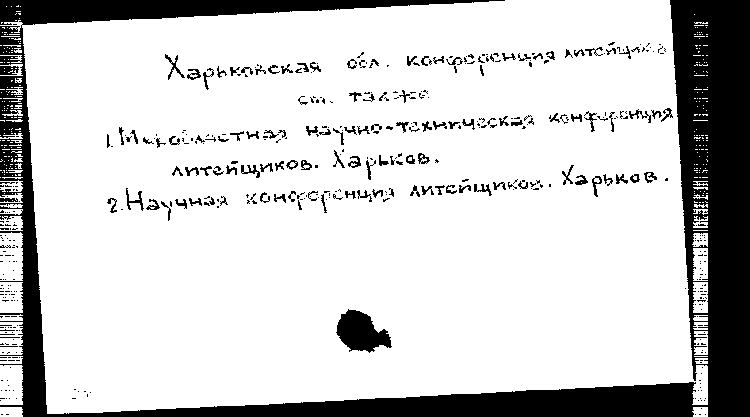 Харьковская обл. конференция литейщиков
см. также
1. Межобластная научно-техническая конференция
литейщиков. Харьков.
2. Научная конференция литейщиков. Харьков.